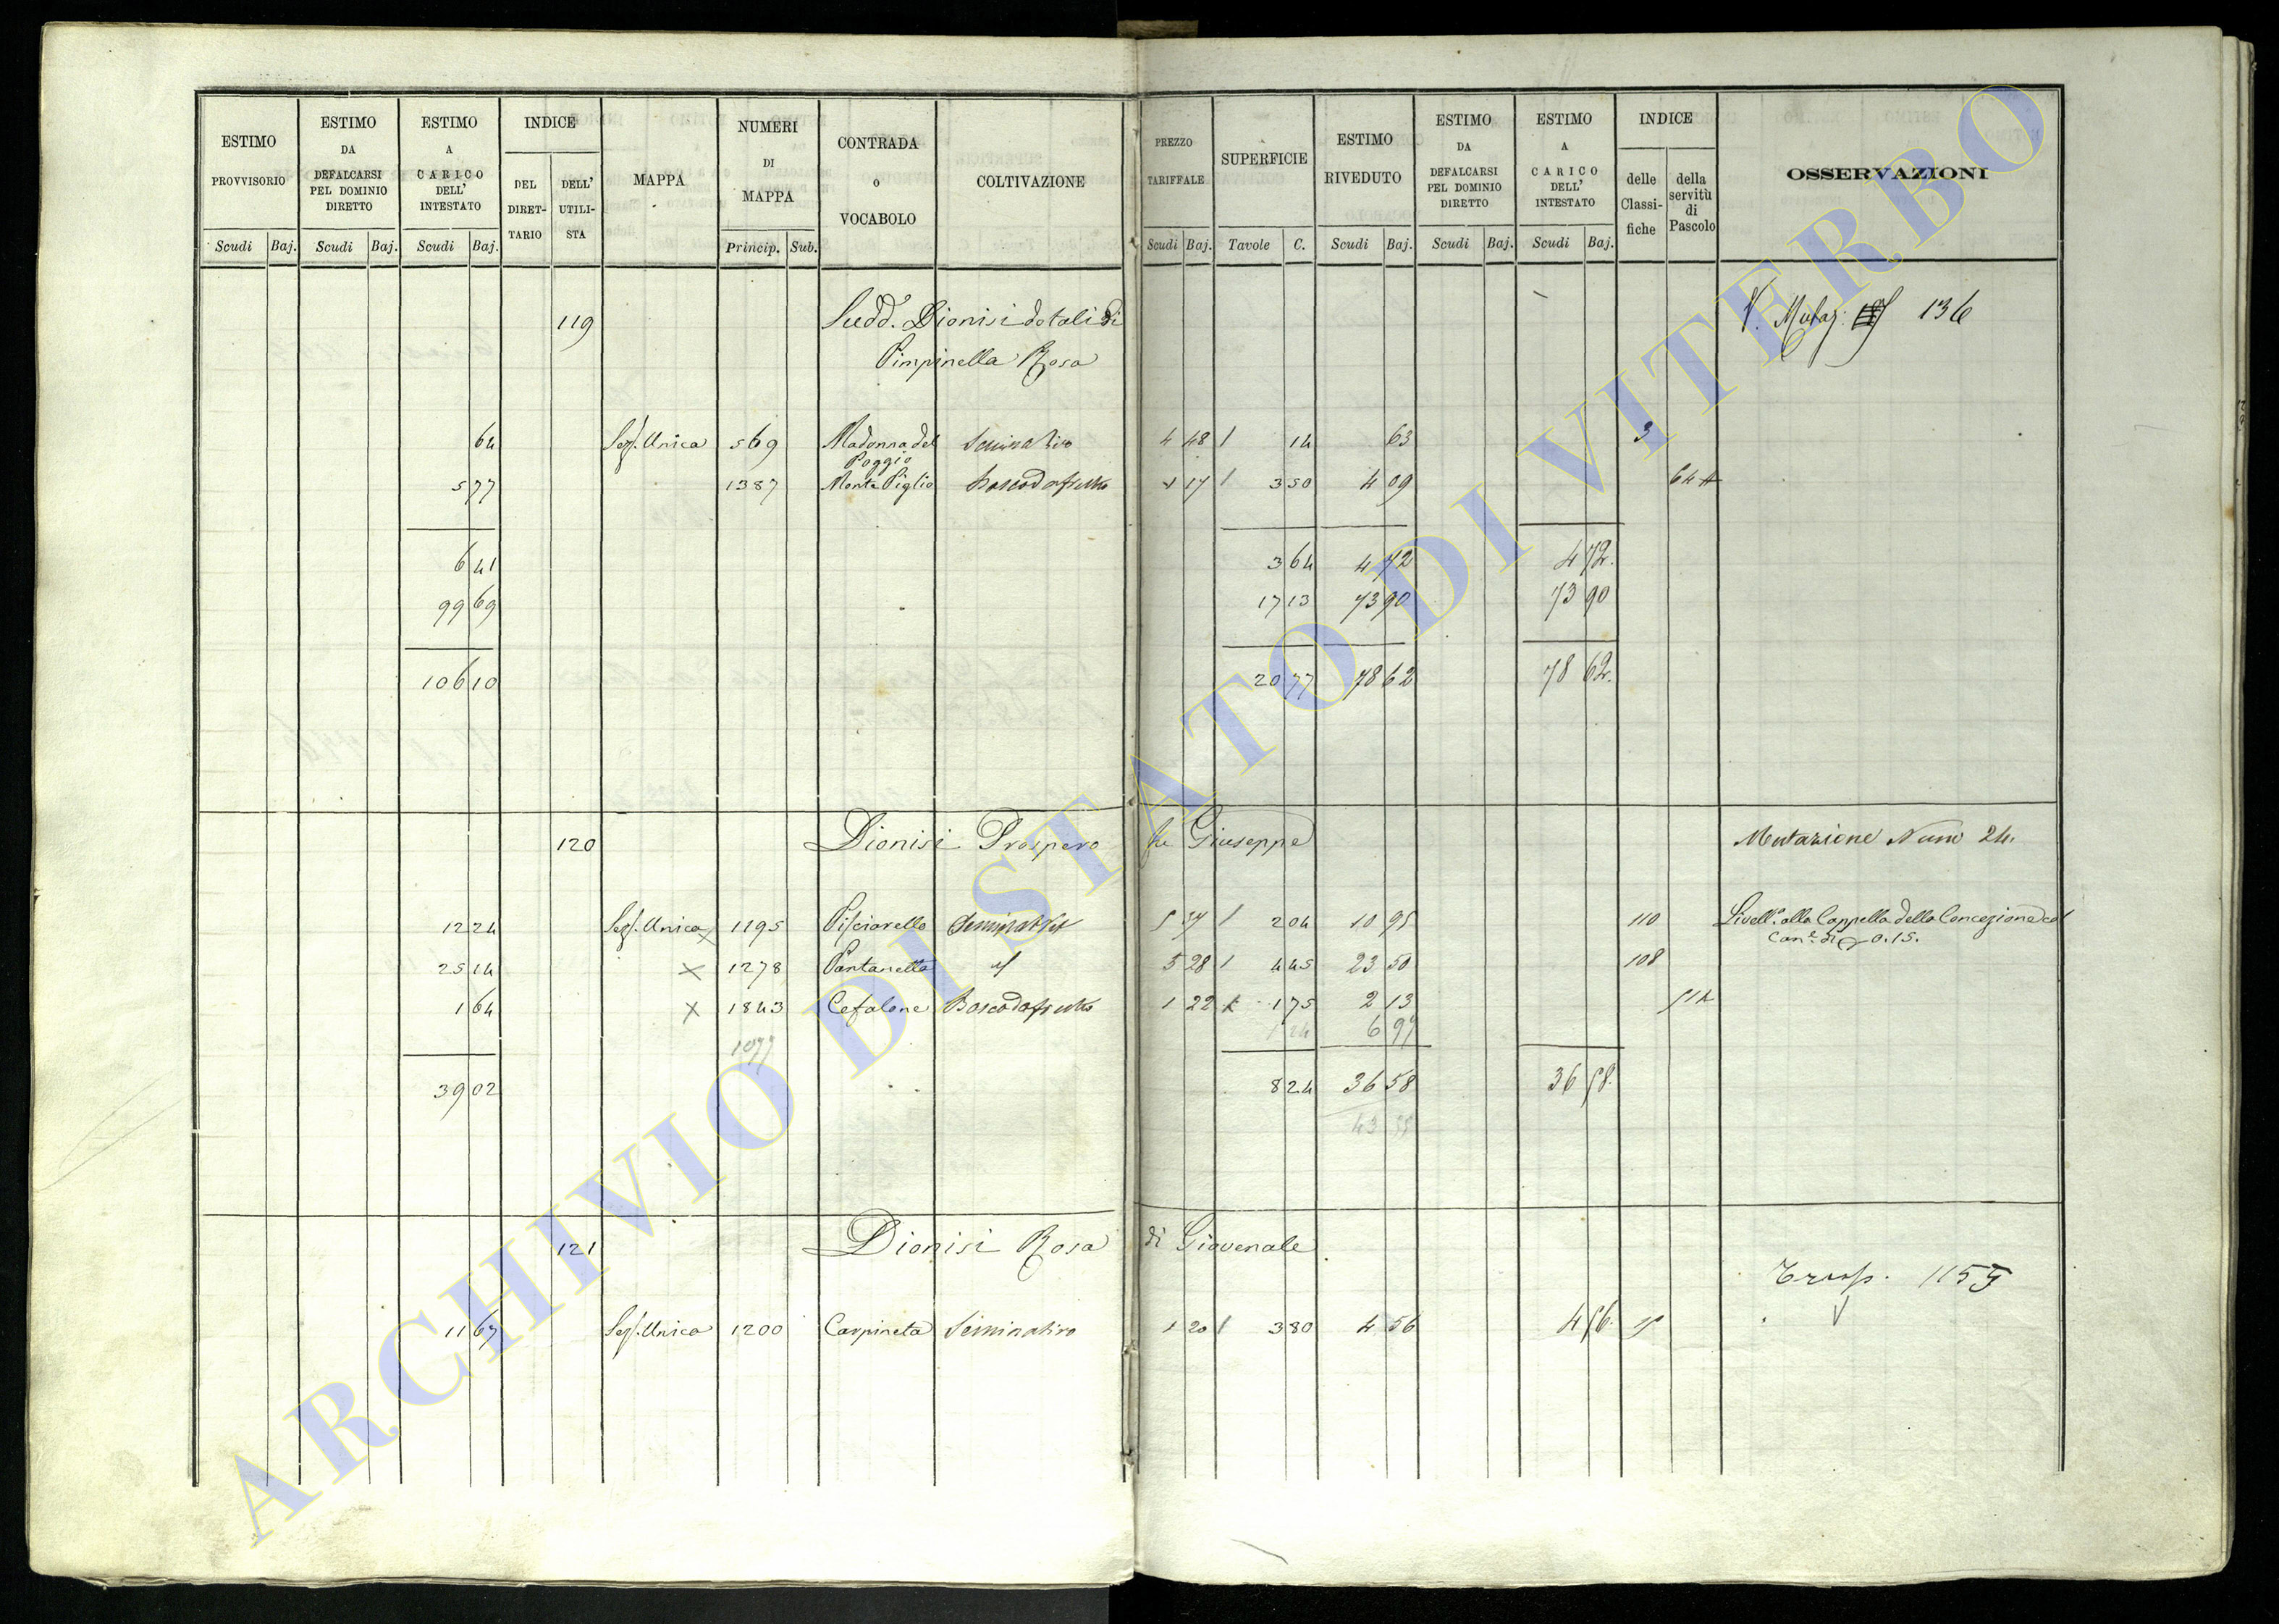 ESTIMO PROVVISORIO
ESTIMO DA DEFALCARSI PEL DOMINIO DIRETTO
ESTIMO A CARICO DELL' INTESTATO
INDICE
DEL DIRET-TARIO
DELL' UTILI-STA
MAPPA
NUMERI DI MAPPA
CONTRADA o VOCABOLO
COLTIVAZIONE
PREZZO TARIFFALE
SUPERFICIE
ESTIMO RIVEDUTO
ESTIMO DA DEFALCARSI PEL DOMINIO DIRETTO
ESTIMO A CARICO DELL' INTESTATO
INDICE
delle Classi-fiche
della servitù di Pascolo
OSSERVAZIONI
Scudi Baj. Scudi Baj. Scudi Baj. Princip. Sub. Scudi Baj. Tavole C. Scudi Baj. Scudi Baj. Scudi Baj.
119 Sudd. Dionisi dotali di V. Mutaz: 136
Pimpinella Rosa
64 Sez. Unica 569 Madonna del Seminativo 4 48 1 14 63 3
Poggio
5 77 1387 Monte Piglio Bosco da frutto 1 17 1 3 50 4 09 64
6 41 3 64 4 72 4 72.
99 69 17 13 73 90 73 90
106 10 20 77 78 62 78 62.
120 Dionisi Prospero fu Giuseppe Mutazione Num 24.
12 24 Sez. Unica 1195 Pisciarello 5 37 1 2 04 10 95 110 Livell. alla Cappella della Concezione col
Can. di 0.15.
25 14 1278 Pantanella 5 28 1 4 45 23 50 108
1 64 1843 Cefalone Bosco da frutto 1 22 1 75 2 13
1077 6 97
39 02 8 24 36 58 36 58.
43 55
121 Dionisi Rosa di Giovenale
Trasp. 1155
11 67 Sez. Unica 1200 Carpineta Seminativo 1 20 1 3 80 4 56 4 56.
ARCHIVIO DI STATO DI VITERBO